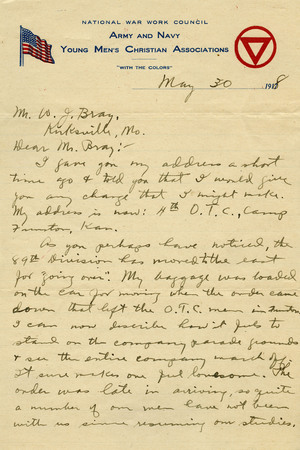 NATIONAL WAR WORK COUNCIL
ARMY AND NAVY
YOUNG MEN'S CHRISTIAN ASSOCIATIONS
"WITH THE COLORS"
May 30 1918
Mr. W. J. Bray,
Kirksville, Mo.
Dear Mr. Bray:-
I gave you my address a short
time ago & told you that I would give
you any change that I might make.
My address is now: 4th O.T.C., Camp
Funston, Kan.
As you perhaps have noticed, the
89th Division has moved to the east
for "going over". My baggage was loaded
on the car for moving when the order came
down that left the O.T.C. men in Funston
I can now describe how it feels to
stand on the company parade grounds
& see the entire company march off.
It sure makes one feel lonesome. The
order was late in arriving, so quite
a number of our men have not been
with us since resuming our studies.